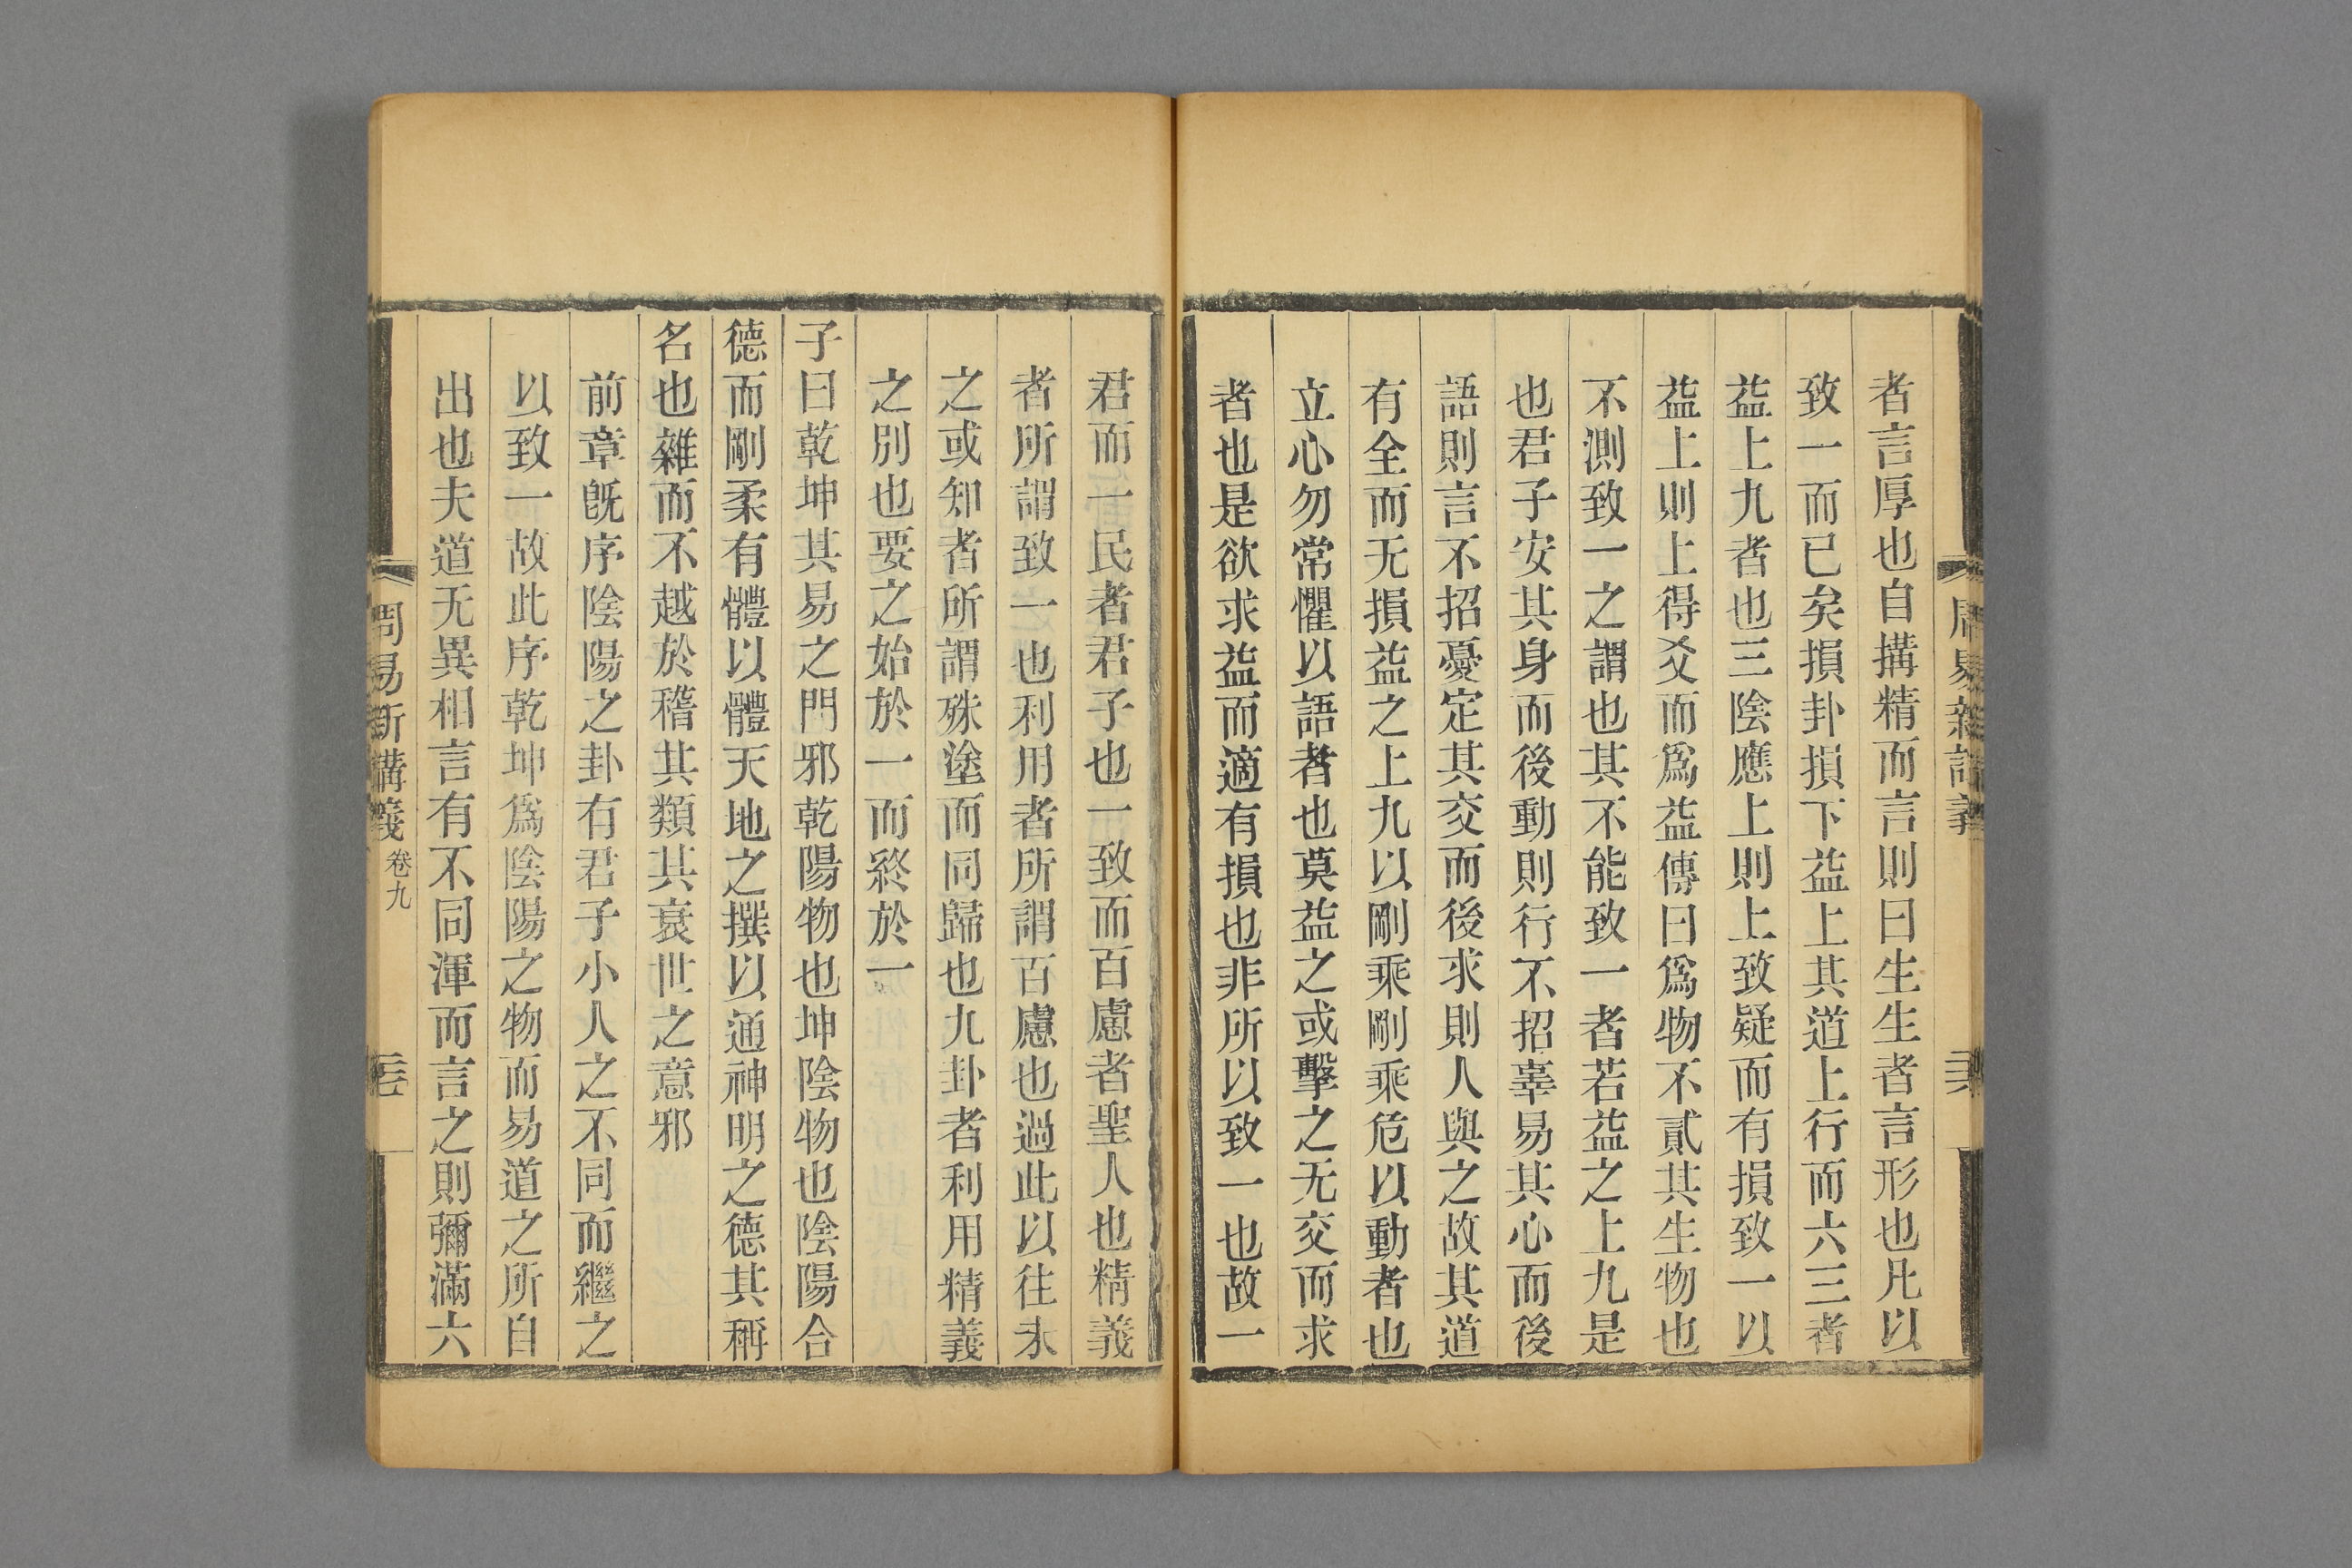 者言厚也自搆精而言則曰生生者言形也凡以
致一而已矣損卦損下益上其道上行而六三者
益上九者也三陰應上則上致疑而有損致一以
益上則上得爻而爲益傳曰爲物不貳其生物也
不測致一之謂也其不能致一者若益之上九是
也君子安其身而後動則行不招辜易其心而後
語則言不招憂定其交而後求則人與之故其道
有全而无損益之上九以剛乘剛乘危以動者也
立心勿常懼以語者也莫益之或擊之无交而求
者也是欲求益而適有損也非所以致一也故一
君而一民者君子也一致而百慮者聖人也精義
者所謂致一也利用者所謂百慮也過此以往未
之或知者所謂殊塗而同歸也九卦者利用精義
之別也要之始於一而終於一
子曰乾坤其易之門邪乾陽物也坤陰物也陰陽合
德而剛柔有體以體天地之撰以通神明之德其稱
名也雜而不越於稽其類其衰世之意邪
前章既序陰陽之卦有君子小人之不同而繼之
以致一故此序乾坤爲陰陽之物而易道之所自
出也夫道无異相言有不同渾而言之則彌滿六
周易新講義
卷九